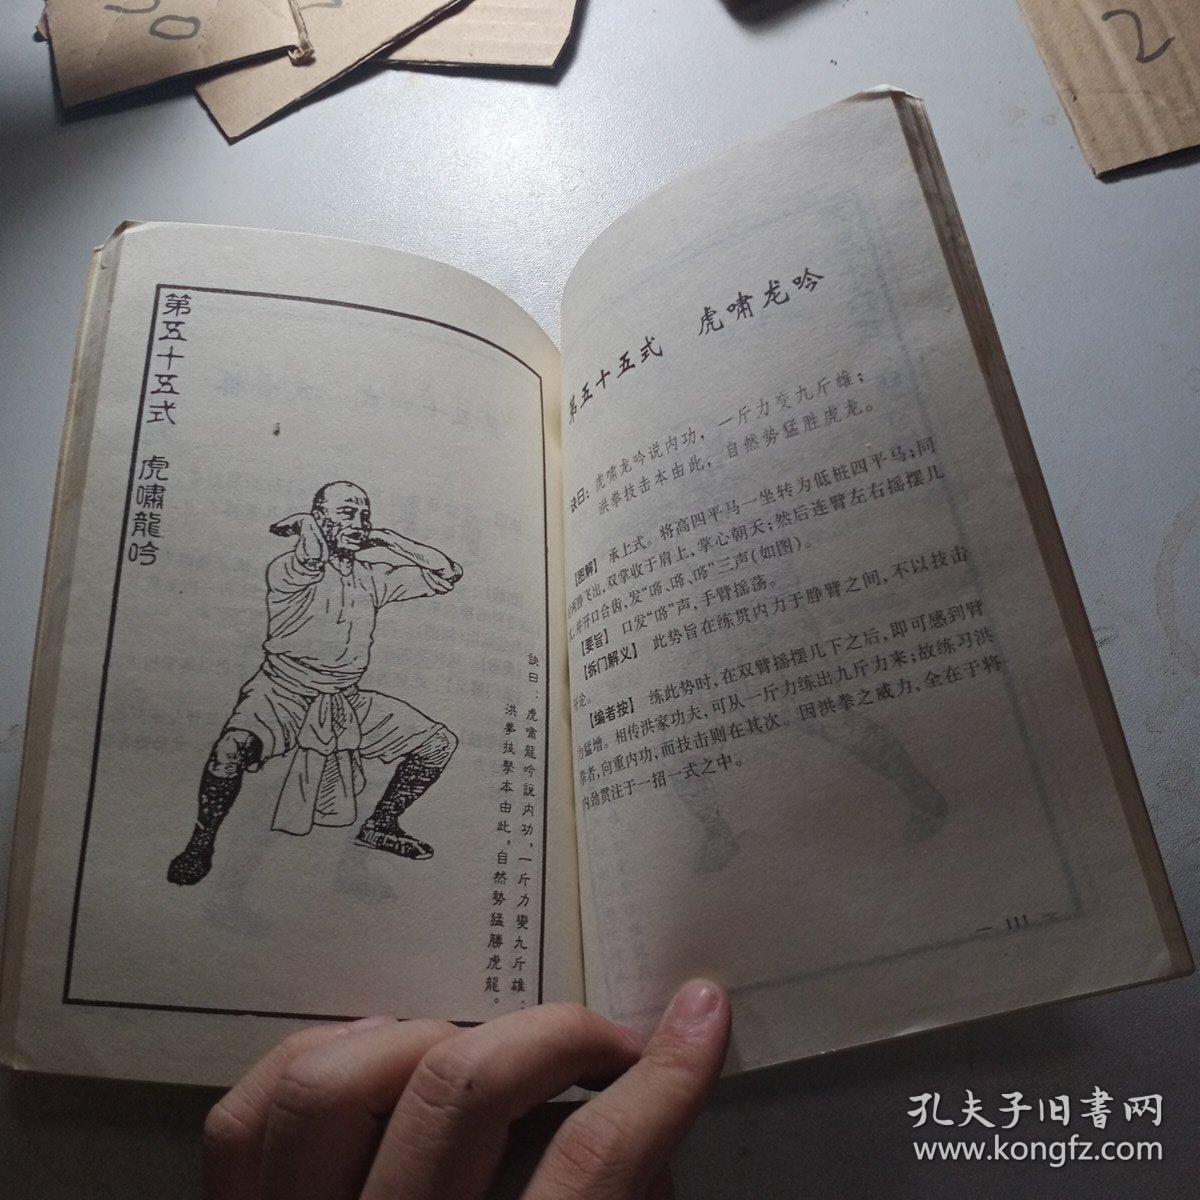 第五十五式 虎嘯龍吟
訣曰：虎嘯龍吟說內功，一斤力變九斤雄；
洪拳技擊本由此，自然勢猛勝虎龍。
第五十五式 虎啸龙吟
诀曰：虎啸龙吟说内功，一斤力变九斤雄；
洪拳技击本由此，自然势猛胜虎龙。
【图解】 承上式。将高四平马一坐转为低桩四平马；同
两掌收于肩上，掌心朝天；然后连臂左右摇摆几
并开口合齿，发“嗒、嗒、嗒”三声(如图)。
【要旨】 口发“嗒”声，手臂摇荡。
【拆门解义】 此势旨在练贯内力于脖臂之间，不以技击
论。
【编者按】 练此势时，在双臂摇摆几下之后，即可感到臂
力猛增。相传洪家功夫，可从一斤力练出九斤力来；故练习洪
拳者，向重内功，而技击则在其次。因洪拳之威力，全在于将
内劲贯注于一招一式之中。
— 111 —
50
2
孔夫子旧書网
www.kongfz.com